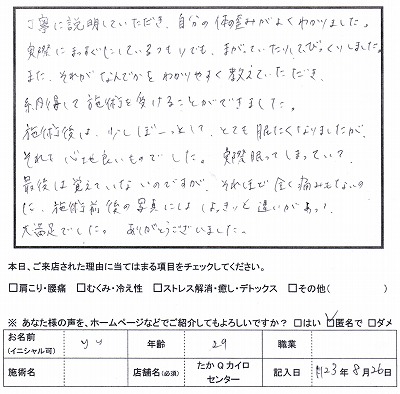 丁寧に説明していただき、自分の体の歪みがよくわかりました。
実際にまっすぐにしているつもりでも、まがっていたりしてびっくりしました。
また、それがなんでかをわかりやすく教えていただき、
納得して施術を受けることができました。
施術後は、少しぼーっとして、とても眠たくなりましたが、
それも心地良いものでした。実際眠ってしまっていて、
最後は覚えていないのですが、それほど全く痛みもないの
に、施術前後の写真にははっきりと違いがあって
大満足でした。ありがとうございました。
本日、ご来店された理由に当てはまる項目をチェックしてください。
□肩こり・腰痛 □むくみ・冷え性 □ストレス解消・癒し・デトックス □その他( )
※ あなた様の声を、ホームページなどでご紹介してもよろしいですか? □はい □匿名で □ダメ
お名前 (イニシャル可) y.y 年齢 29 職業
施術名 店舗名(必須) たかQカイロセンター 記入日 H23年8月26日